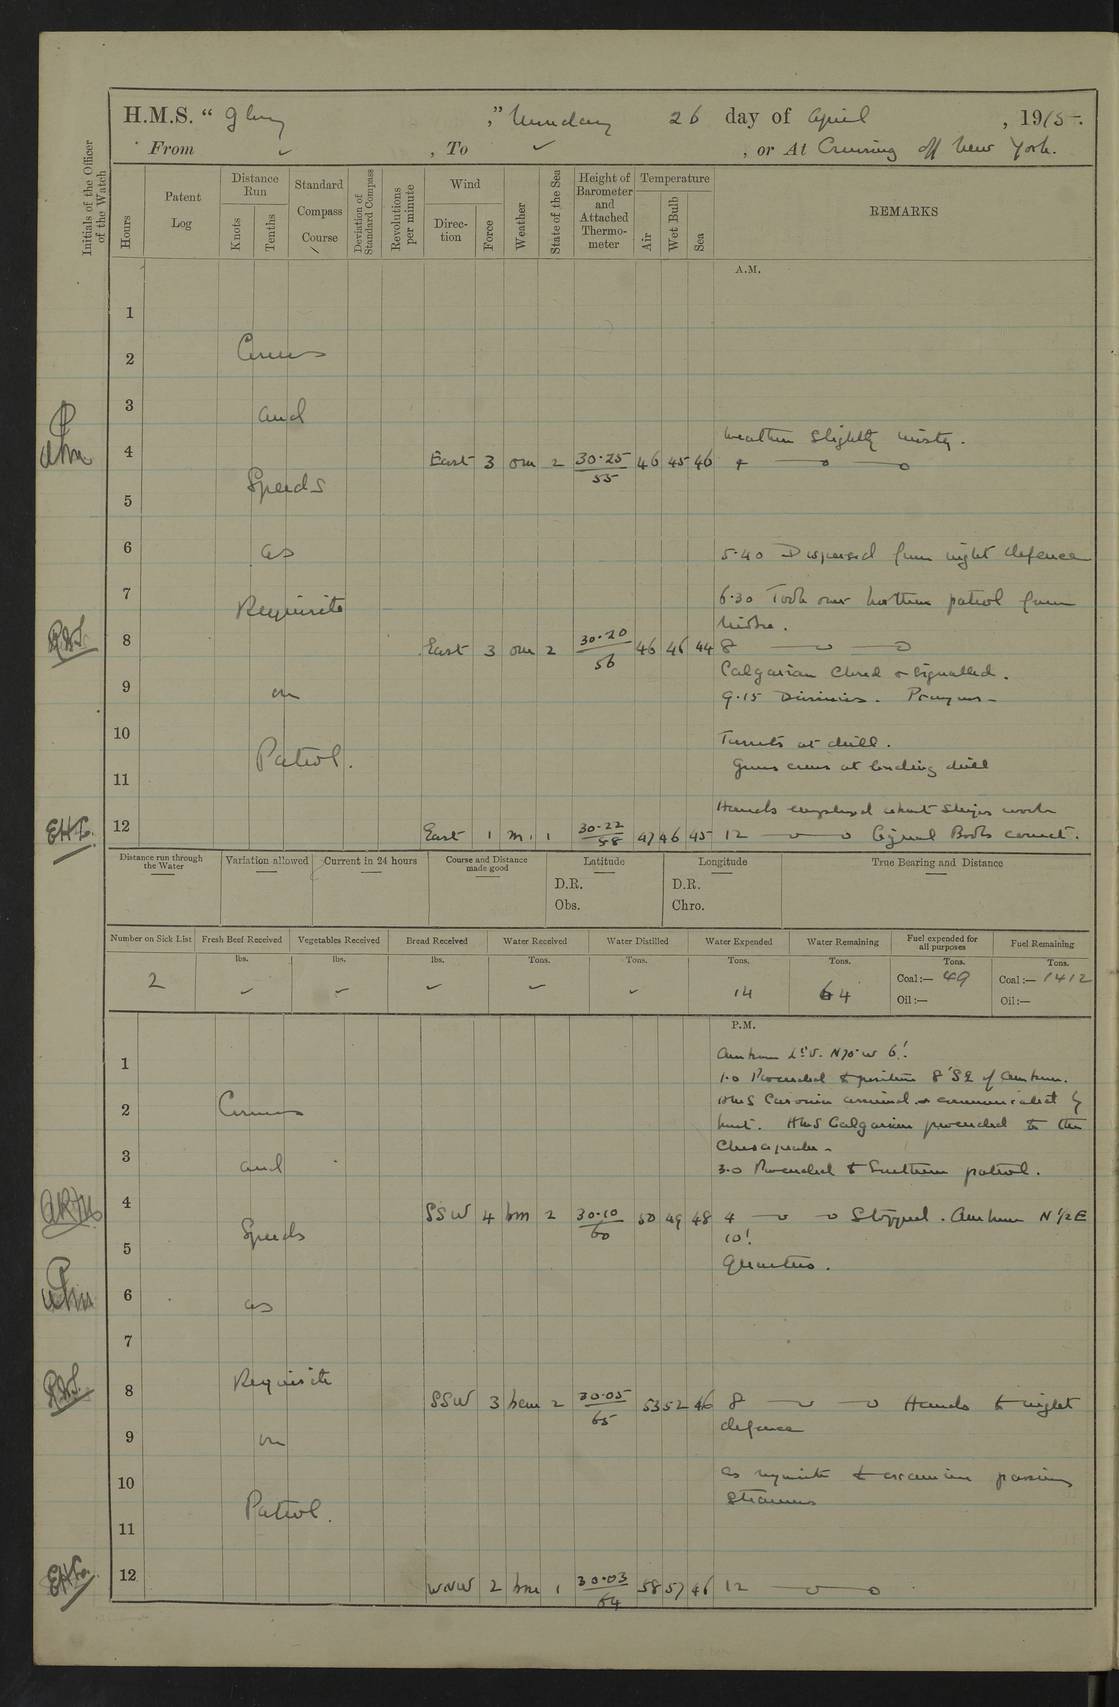 H.M.S. “ Glory ,” Monday 26 day of April , 1915.
From ✓ , To ✓ , or At Cruising off New York.
Initials of the Officer of the Watch
Hours
Patent Log
Distance Run
Knots
Tenths
Standard Compass Course
Deviation of Standard Compass
Revolutions per minute
Wind
Direction
Force
Weather
State of the Sea
Height of Barometer and Attached Thermometer
Temperature
Air
Wet Bulb
Sea
REMARKS
A.M.
1
2 Courses
3 and
Weather slightly misty.
4 East 3 om 2 30·25 55 46 45 46 4
5 Speeds
6 as 5·40 Dispersed from night defence
7 Requisite 6·30 Took over northern patrol from
Niobe.
8 East 3 om 2 30·20 56 46 46 44 8
Calgarian closed & signalled.
9 on 9·15 Divisions. Prayers
10 Turrets at drill.
11 Patrol. Guns crews at loading drill
Hands employed about ships work
12 East 1 m 1 30·22 58 47 46 45 12 Signal Books correct.
E.H.L.
Distance run through the Water
Variation allowed
Current in 24 hours
Course and Distance made good
Latitude
D.R.
Obs.
Longitude
D.R.
Chro.
True Bearing and Distance
Number on Sick List
Fresh Beef Received
Vegetables Received
Bread Received
Water Received
Water Distilled
Water Expended
Water Remaining
Fuel expended for all purposes
Fuel Remaining
lbs. lbs. lbs. Tons. Tons. Tons. Tons. Tons. Tons.
2 ✓ ✓ ✓ ✓ ✓ 14 64 Coal:— 49 Coal:— 1412
Oil:— Oil:—
P.M.
Ambrose L.V. N70°W 6'.
1 1·0 Proceeded to position 8' SE of Ambrose.
2 Courses HMS Caronia arrived & communicated by
boat. HMS Calgarian proceeded to the
3 and Chesapeake.
3·0 Proceeded to Southern patrol.
4 SSW 4 bm 2 30·10 60 50 49 48 4 Stopped. Ambrose N ½ E
Speeds 10'.
5 Quarters.
6 as
7
Requisite
8 SSW 3 bcm 2 30·05 65 53 52 46 8 Hands to night
9 on defence
10 as requisite to examine passing
Patrol. steamers
11
12 WNW 2 bm 1 30·03 64 58 57 46 12